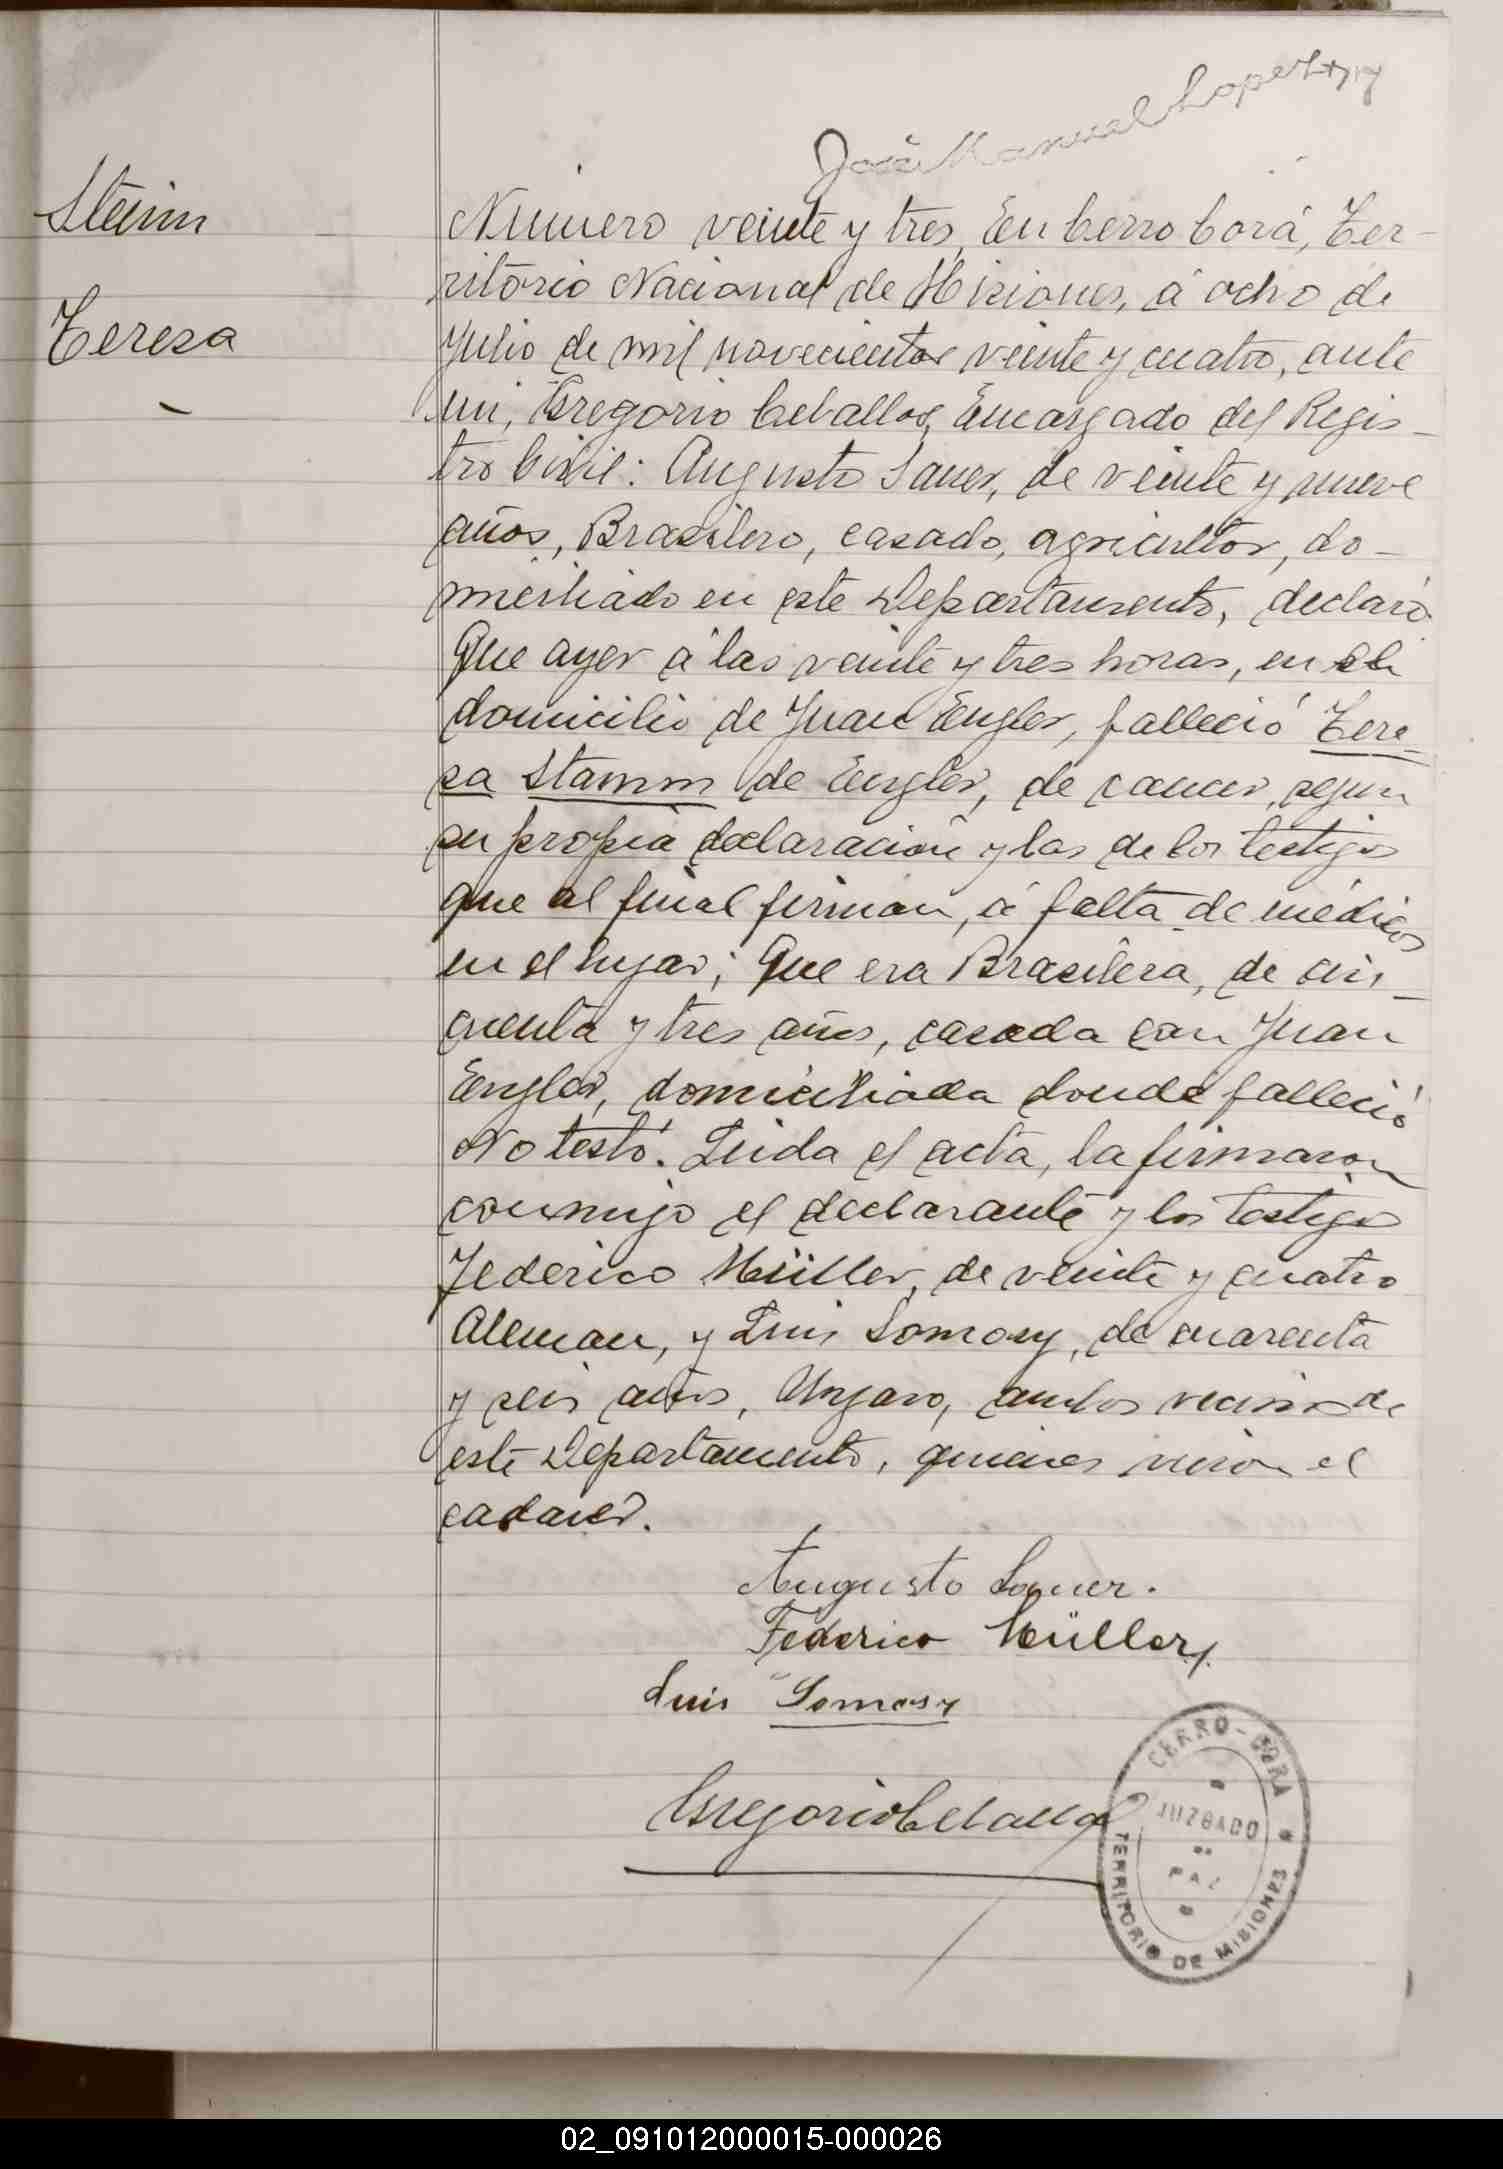 José Manuel Lopez
Stamm
Teresa
Número veinte y tres, En Cerro Corá, Ter-
ritorio Nacional de Misiones, á ocho de
Julio de mil novecientos veinte y cuatro, ante
mi, Gregorio Ceballos, Encargado del Regis-
tro Civil: Augusto Sauer, de veinte y nueve
años, Brasilero, casado, agricultor, do-
miciliado en este Departamento, declaró
Que ayer á las veinte y tres horas, en el
domicilio de Juan Engler, falleció Tere-
sa Stamm de Engler, de cancer, segun
su propia declaracion y las de los testigos
que al final firman, á falta de médicos
en el lugar; Que era Brasilera, de cin-
cuenta y tres años, casada con Juan
Engler, domiciliada donde falleció
No testó. Leida el acta, la firmaron
conmigo el declarante y los testigos
Federico Müller, de veinte y cuatro
Aleman, y Luis Somosy, de cuarenta
y seis años, Ungaro, ambos vecinos de
este Departamento, quienes vieron el
cadaver.
Augusto Sauer.
Federico Müller
Luis Somosy
Gregorio Ceballos
CERRO-CORA
JUZGADO
DE
PAZ
TERRITORIO DE MISIONES
02_091012000015-000026